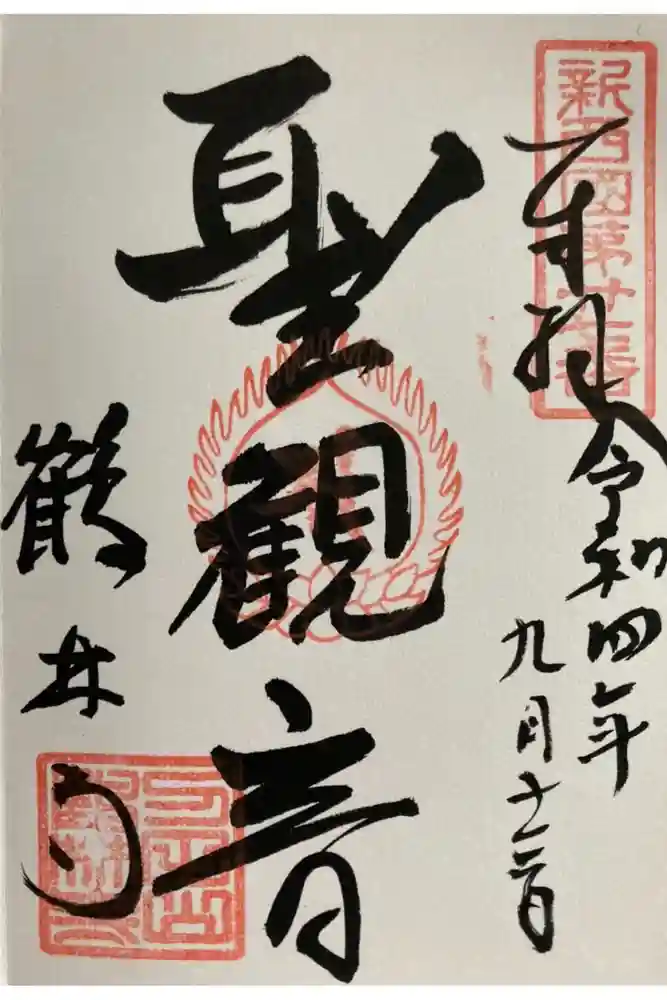 新西國第廿七番
奉拝
令和四年
九月十二日
聖観音
鶴林寺